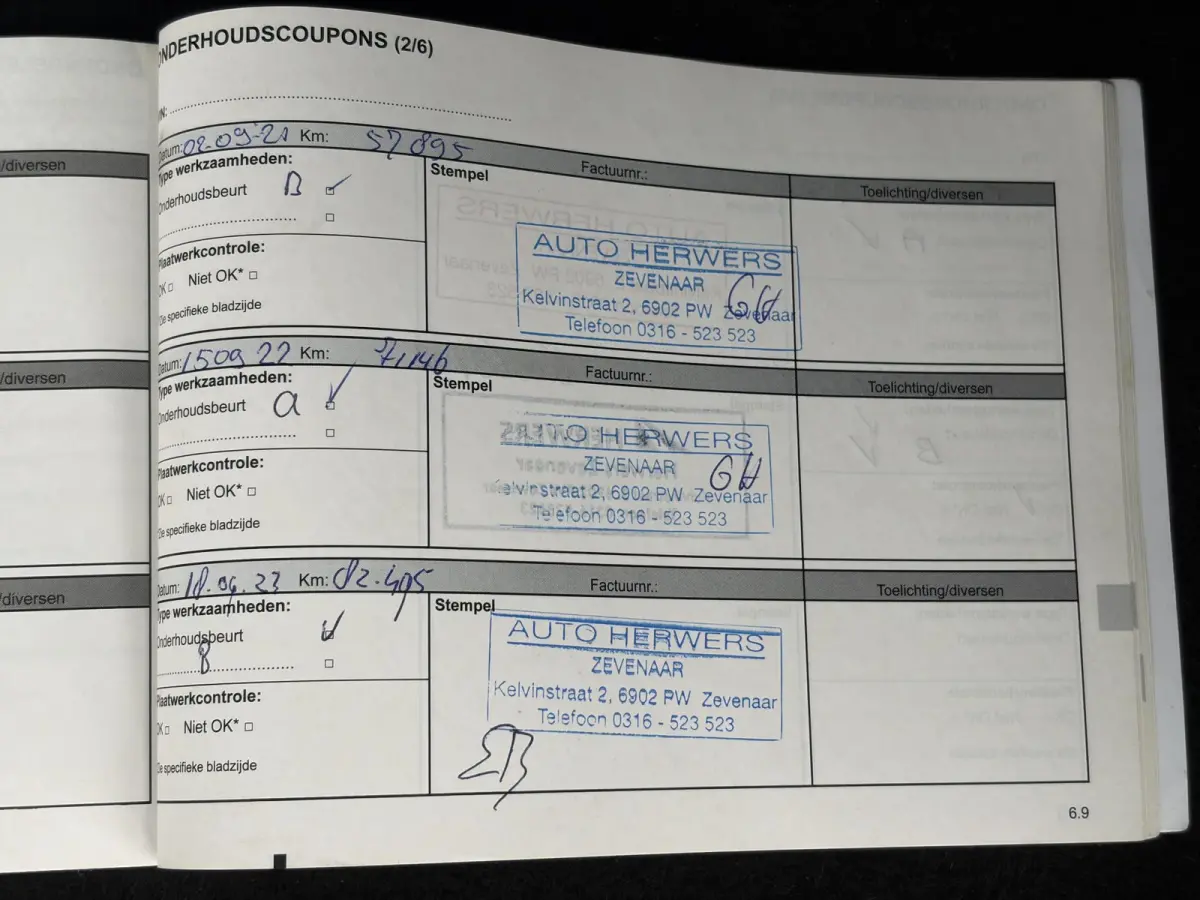 ONDERHOUDSCOUPONS (2/6)
VIN:
Datum: 02-09-21 Km: 57895 Factuurnr.: Toelichting/diversen
Type werkzaamheden:
Onderhoudsbeurt B
Stempel
AUTO HERWERS
ZEVENAAR
Kelvinstraat 2, 6902 PW Zevenaar
Telefoon 0316 - 523 523
GH
Plaatwerkcontrole:
OK □ Niet OK* □
*Zie specifieke bladzijde
Datum: 150922 Km: 71146 Factuurnr.: Toelichting/diversen
Type werkzaamheden:
Onderhoudsbeurt a
Stempel
AUTO HERWERS
ZEVENAAR
Kelvinstraat 2, 6902 PW Zevenaar
Telefoon 0316 - 523 523
GH
Plaatwerkcontrole:
OK □ Niet OK* □
*Zie specifieke bladzijde
Datum: Km: 82.495 Factuurnr.: Toelichting/diversen
Type werkzaamheden:
Onderhoudsbeurt
B
Stempel
AUTO HERWERS
ZEVENAAR
Kelvinstraat 2, 6902 PW Zevenaar
Telefoon 0316 - 523 523
Plaatwerkcontrole:
OK □ Niet OK* □
*Zie specifieke bladzijde
6.9
/diversen
/diversen
/diversen